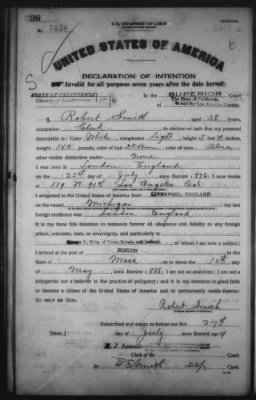 38
U. S. DEPARTMENT OF LABOR
UNITED STATES OF AMERICA
DECLARATION OF INTENTION
Invalid for all purposes seven years after the date hereof
STATE OF CALIFORNIA
County of Los Angeles
In the SUPERIOR Court
of The State of California
I, Robert Smith, aged 38 years,
occupation Clerk, do declare on oath that my personal
description is: Color White, complexion Light, height 5 feet
weight 140 pounds, color of hair, color of eyes Blue
other visible distinctive marks None
I was born in London England
on the 25th day of July, anno Domini 1876; I now reside
at 119 W. 91st Los Angeles Cal
I emigrated to the United States of America from LIVERPOOL, ENGLAND
on the vessel Michigan; my last
foreign residence was London England
It is my bona fide intention to renounce forever all allegiance and fidelity to any foreign
prince, potentate, state, or sovereignty, and particularly to
George V, King of Great Britain and Ireland, of whom I am now a subject;
I arrived at the port of BOSTON, in the
State of Mass, on or about the 10th day
of May, anno Domini 1888; I am not an anarchist; I am not a
polygamist nor a believer in the practice of polygamy; and it is my intention in good faith
to become a citizen of the United States of America and to permanently reside therein:
SO HELP ME GOD.
Robert Smith
Subscribed and sworn to before me this 27th
[SEAL.] day of July, anno Domini 1914
Clerk of the Court.